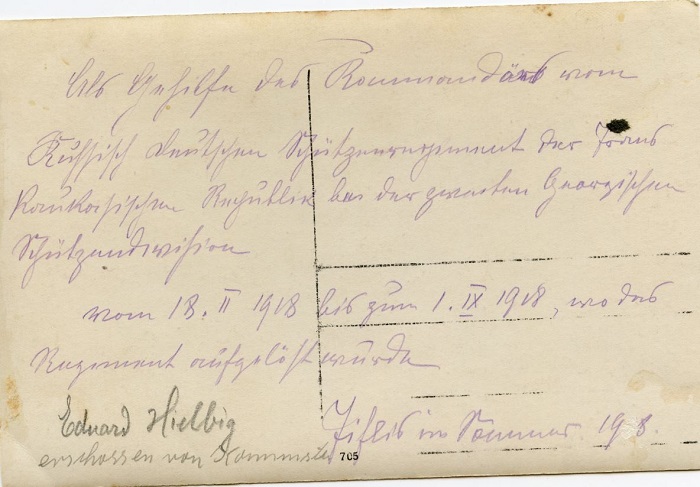 Als Gehilfe des Kommandärs vom
Russisch Deutschen Schützenregiment der Trans
Kaukasischen Republik bei der zweiten Georgischen
Schützendivision
vom 18. II 1918 bis zum 1. IX 1918, wo das
Regiment aufgelöst wurde
Tiflis im Sommer 1918.
Eduard Hielbig
erschossen von Kommunisten
705